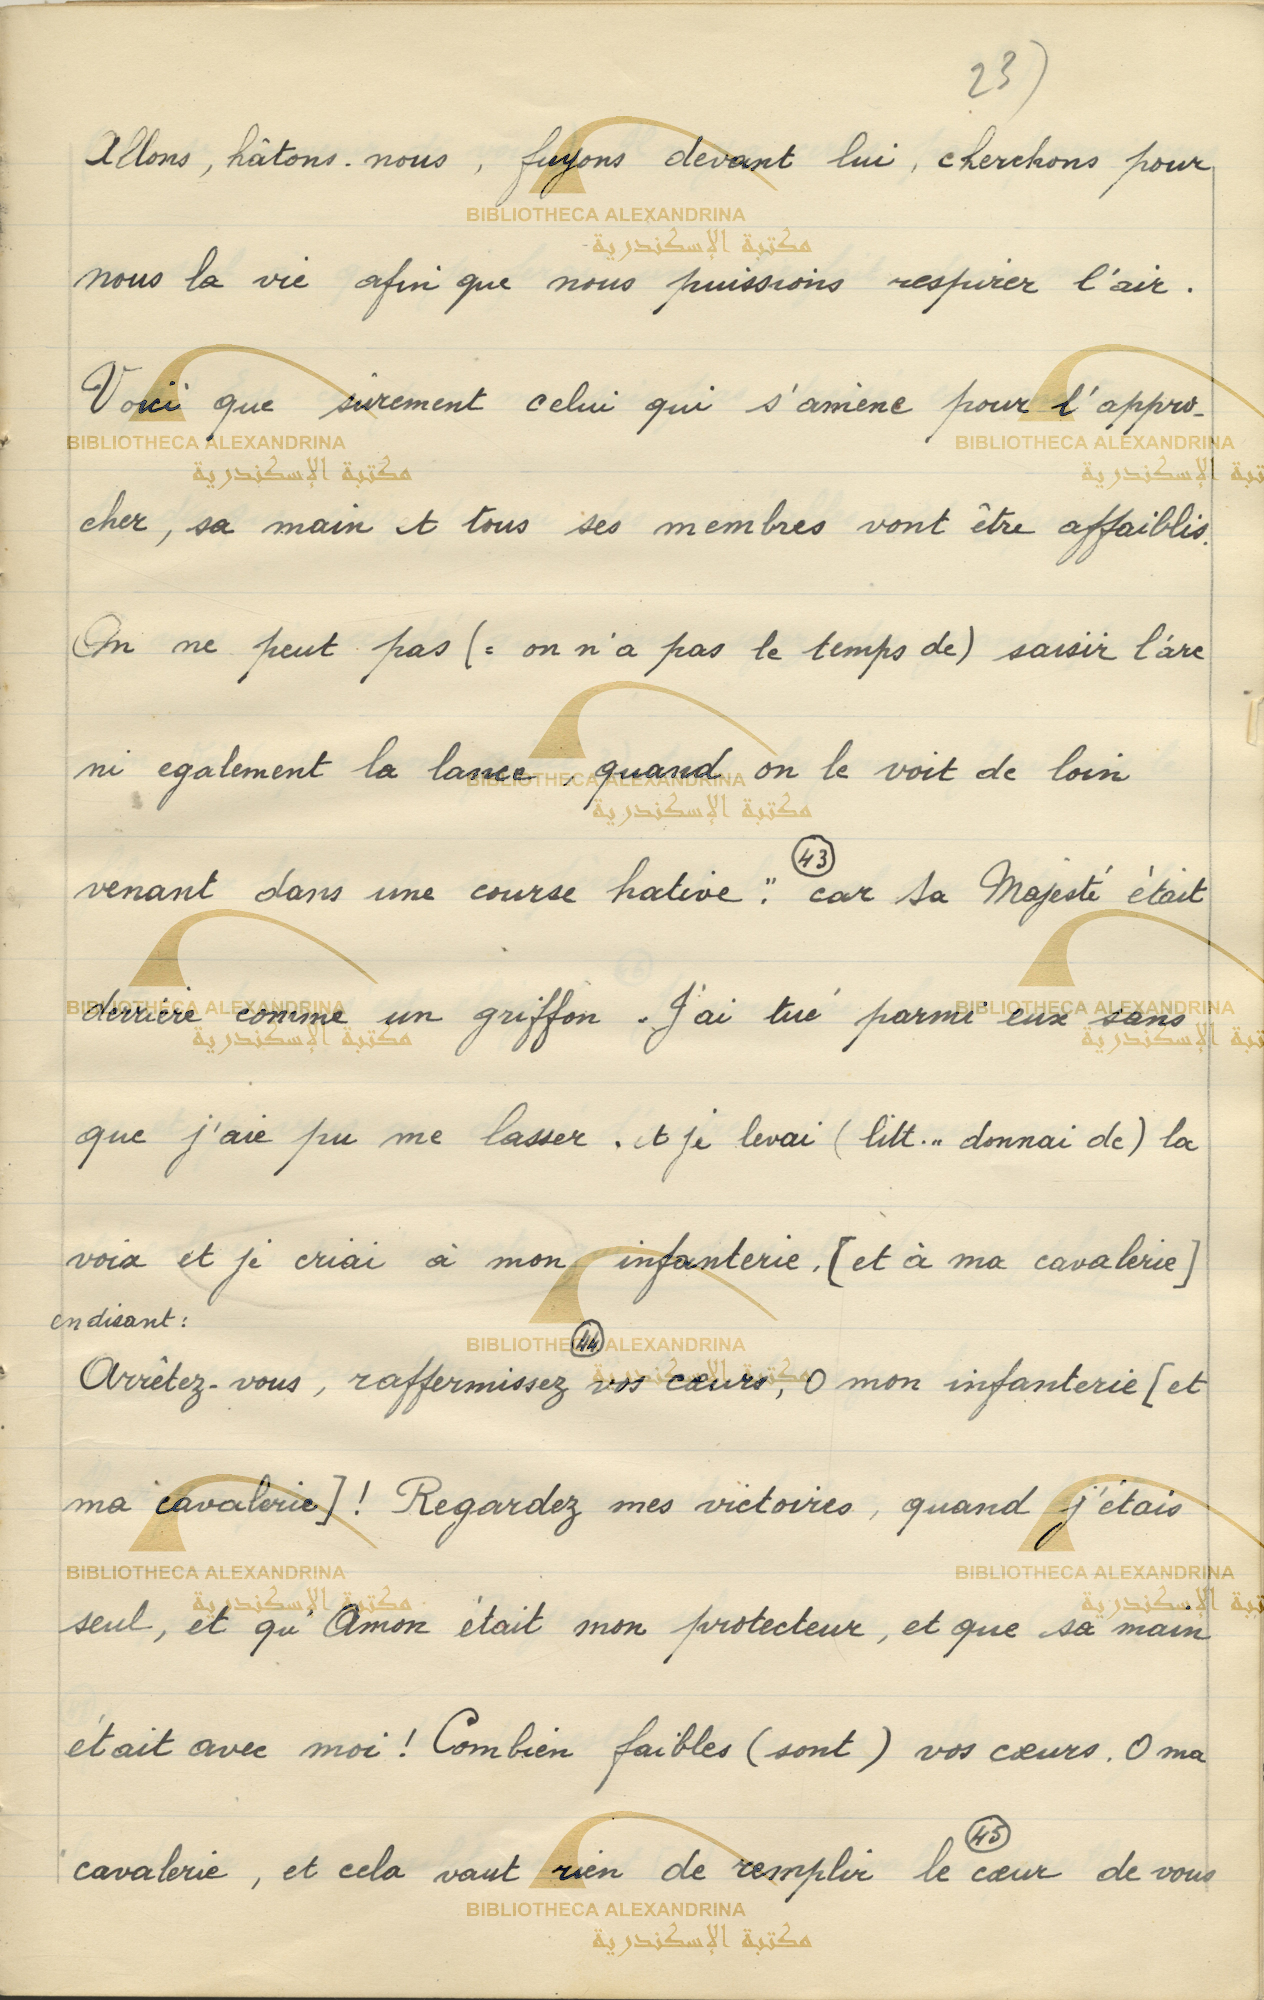 23)
Allons, hâtons-nous, fuyons devant lui, cherchons pour
nous la vie afin que nous puissions respirer l'air.
Voici que sûrement celui qui s'amène pour l'appro-
cher, sa main et tous ses membres vont être affaiblis.
On ne peut pas (= on n'a pas le temps de) saisir l'arc
ni egalement la lance, quand on le voit de loin
venant dans une course hative." (43) car Sa Majesté était
derrière comme un griffon. J'ai tué parmi eux sans
que j'aie pu me lasser. et je levai (litt... donnai de) la
voix et je criai à mon infanterie, [et à ma cavalerie]
en disant:
Arrêtez-vous, raffermissez (44) vos cœurs, O mon infanterie [et
ma cavalerie]! Regardez mes victoires, quand j'étais
seul, et qu'Amon était mon protecteur, et que sa main
était avec moi! Combien faibles (sont) vos cœurs. O ma
cavalerie, et cela vaut rien de remplir le (45) cœur de vous
BIBLIOTHECA ALEXANDRINA
مكتبة الإسكندرية